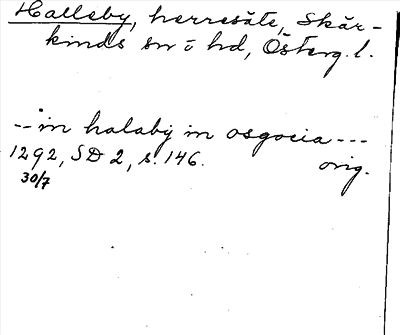 Halleby, herresäte, Skär-
kinds sn o hd, Österg. l.
-- in halaby in osgocia ---
1292, SD 2, s. 146. orig.
30/7